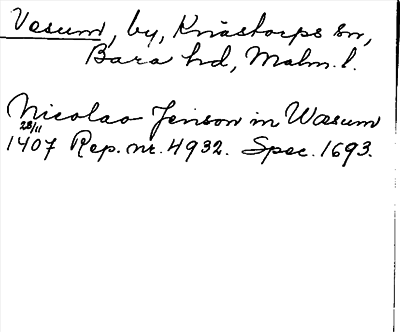 Vesum, by, Knästorps sn,
Bara hd, Malm. l.
Nicolao Jenson in Wæsum
28/11
1407 Rep. nr. 4932. Spec. 1693.